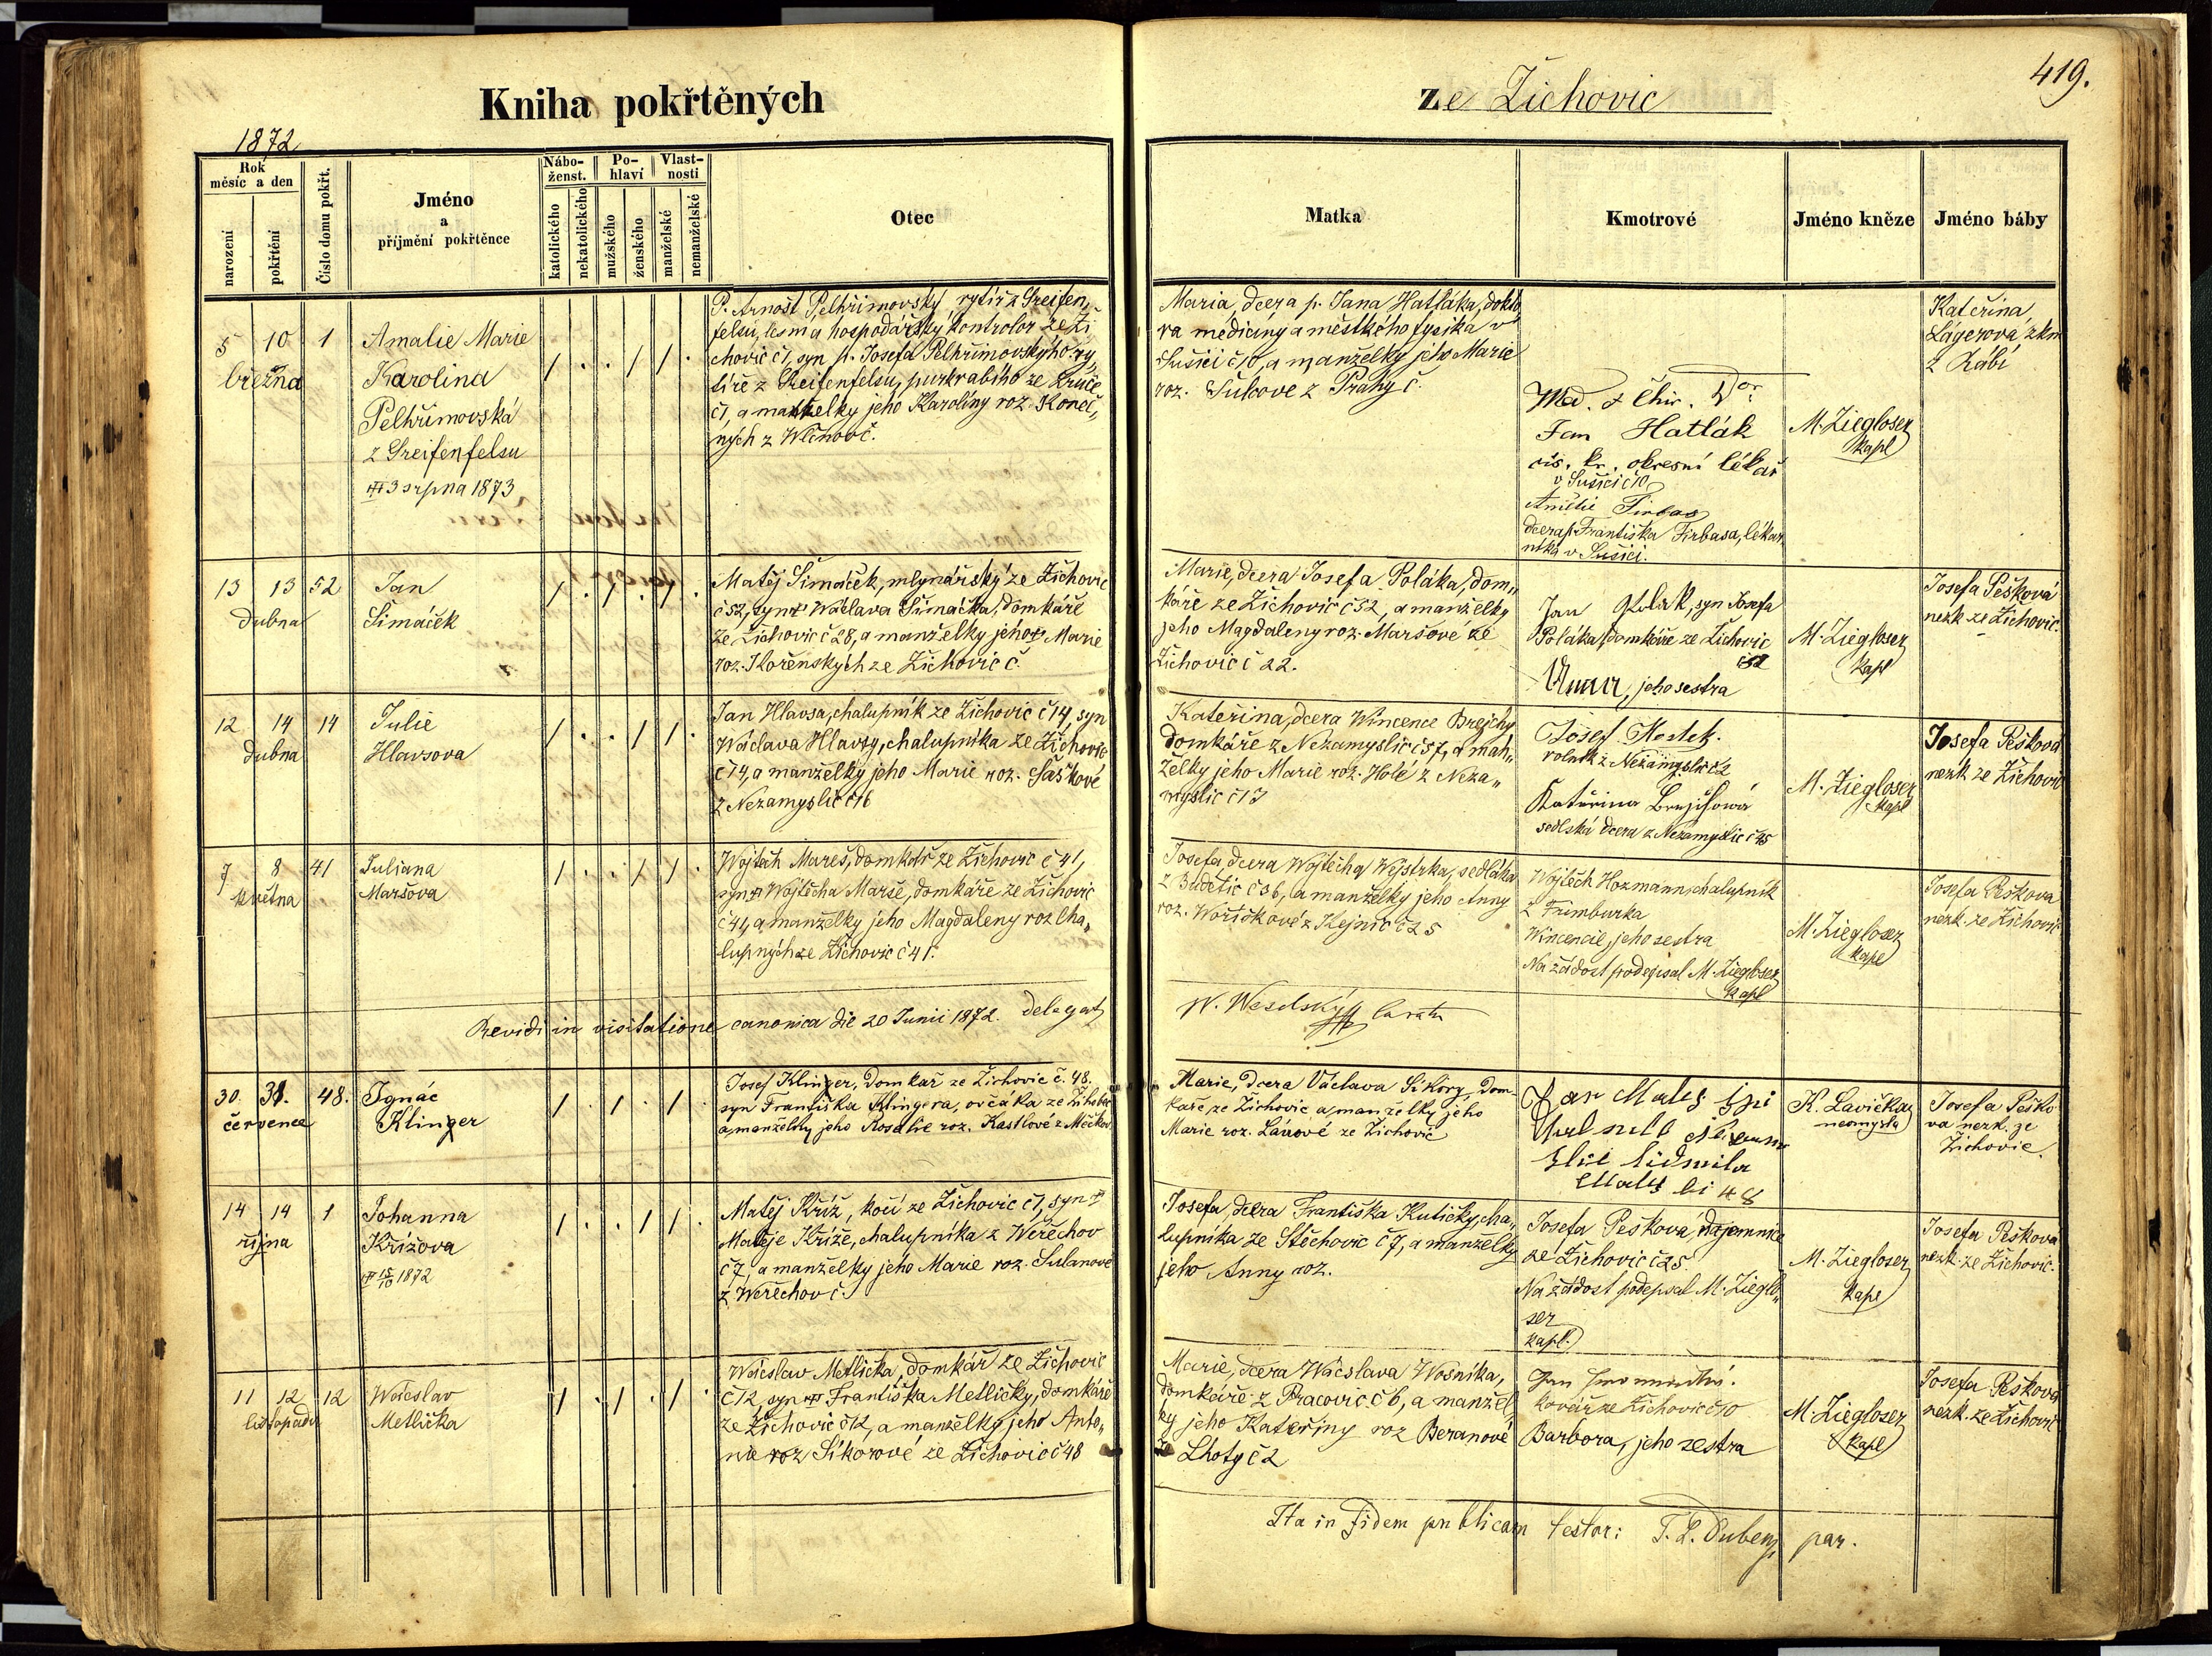 Kniha pokřtěných
ze Žichovic
419.
1872
Rok
měsíc a den
narození
pokřtění
Číslo domu pokřt.
Jméno
a
příjmění pokřtěnce
Nábo-
ženst.
katolického
nekatolického
Po-
hlaví
mužského
ženského
Vlast-
nosti
manželské
nemanželské
Otec
Matka
Kmotrové
Jméno kněze
Jméno báby
5 10 1
března
Amalie Marie
Karolina
Pelhřimovská
z Greifenfelsu
3 srpna 1873
/ . . / / .
P. Arnošt Pelhřimovský rytíř z Greifen„
felsu, lesní a hospodářský kontrolor ze Ži
chovic č 1, syn p. Josefa Pelhřimovského ry„
tíře z Greifenfelsu, purkrabího ze Žruče
č 1, a manželky jeho Karolíny roz. Koneč„
ných z
Maria, dcera p. Jana Hatláka, dokto
ra medicíny a městkého fysika v
Sušici č 10, a manželky jeho Marie
roz. Sukove z Prahy č.
Med. & Chir. Dor.
Jan Hatlák
cís. kr. okresní lékař
v Sušici č 10
Amélie Firbas
dcera p. Františka Firbasa, lékár
níka v Sušici.
M. Ziegloser
kapl
Kateřina
Lágerová zkm
z Rábí
13 13 52
dubna
Jan
Šimáček
/ . / . / .
Matěj Šimáček, mlynářský ze Žichovic
č 52, syn † Wáclava Šimáčka, domkáře
ze Žichovic č 28, a manželky jeho † Marie
roz. Kořenských ze Žichovic č.
Marie, dcera Josefa Poláka, dom„
káře ze Žichovic č 52, a manželky
jeho Magdaleny roz. Maršové ze
Žichovic č 22.
Jan Polak, syn Josefa
Poláka, domkáře ze Žichovic
č 52
Anna, jeho sestra
M. Ziegloser
kapl
Josefa Pešková
nezk ze Žichovic.
12 14 14
dubna
Julie
Hlavsova
/ . . / / .
Jan Hlavsa, chalupník ze Žichovic č 14, syn
Wáclava Hlavsy, chalupníka ze Žichovic
č 14, a manželky jeho Marie roz. Šaškové
z Nezamyslic č 16
Kateřina, dcera Wincence Brejchy
domkáře z Nezamyslic č 57, a man„
želky jeho Marie roz. Holé z Neza„
myslic č 13
Josef Kostek.
rolník z Nezamyslic č 2
Kateřina Brejchowá
sedlská dcera z Nezamyslic č 45
M. Ziegloser
kapl
Josefa Pešková
nezk ze Žichovic
7 8 41
května
Juliana
Maršova
/ . . / / .
Wojtěch Mareš, domkář ze Žichovic č 41,
syn † Wojtěcha Marše, domkáře ze Žichovic
č 41, a manželky jeho Magdaleny roz Cha„
lupných ze Žichovic č 41.
Josefa, dcera Wojtěcha Wejstrka, sedláka
z Budětic č 36, a manželky jeho Anny
roz. Woříškové z Kejnic č 25
Wojtěch Hozmann, chalupník
z Frimburka
Wincencie, jeho sestra
Na žádost podepsal M. Ziegloser
kapl
M. Ziegloser
kapl
Josefa Peškova
nezk. ze Žichovic
Revidi in visitatione canonica die 20 Junii 1872. delegat
W. Weselský
30. 31. 48.
července
Ignác
Klinger
/ . / . / .
Josef Klinger, domkař ze Žichovic č. 48.
syn Františka Klingera, ovčáka ze
a manželky jeho Rosalie roz. Kastlové z
Marie, dcera Václava Sikory, dom-
kaře ze Žichovic a manželky jeho
Marie roz. Lánové ze Žichovic
Jan Malý
Lidmila
Malý 48
K. Lavička
neomysta
Josefa Peško
va nezk. ze
Žichovic.
14 14 1
října
Johanna
Křížova
† 15/10 1872
/ . . / / .
Matěj Kříž, kočí ze Žichovic č 1, syn †
Matěje Kříže, chalupníka z Weřechov
č 7, a manželky jeho Marie roz. Sulanové
z Weřechov č.
Josefa, dcera Františka Kutičky, cha„
lupníka ze Stěchovic č 7, a manželky
jeho Anny roz.
Josefa Pešková, nájemnice
ze Žichovic č 25.
Na žádost podepsal M. Zieglo„
ser
kapl.
M. Ziegloser
kapl
Josefa Pešková
nezk. ze Žichovic.
11 12 12
listopadu
Wácslav
Metlička
/ . / . / .
Wácslav Metlička, domkář ze Žichovic
č 12, syn Františka Metličky, domkáře
ze Žichovic č 12, a manželky jeho Anto„
nie roz Síkorové ze Žichovic č 48
Marie, dcera Wácslava Wosnika,
domkáře z Pracovic č 6, a manžel
ky jeho Kateřiny roz Beranové
ze Lhoty č 2
Jan
kovář ze Žichovic č 10
Barbora, jeho sestra
M. Ziegloser
kapl
Josefa Pešková
nezk. ze Žichovic
Ita in fidem publicam testor: T. L. Dubený par.